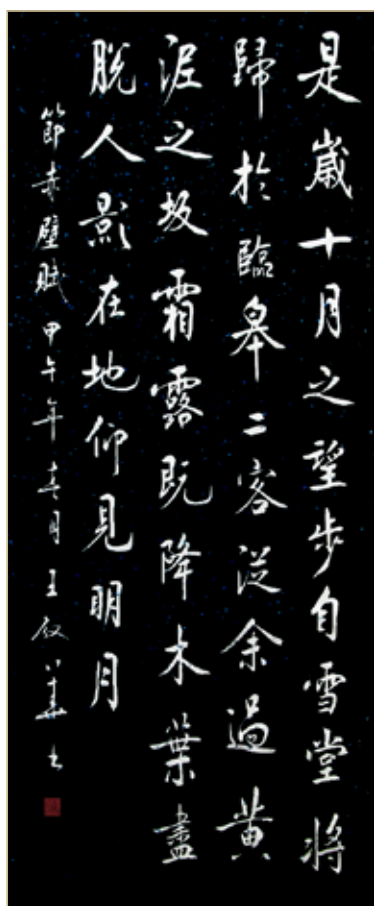 是嵗十月之望步自雪堂將
歸於臨皋二客從余過黄
泥之坂霜露既降木葉盡
脱人影在地仰見明月
節赤壁賦甲午年春月王